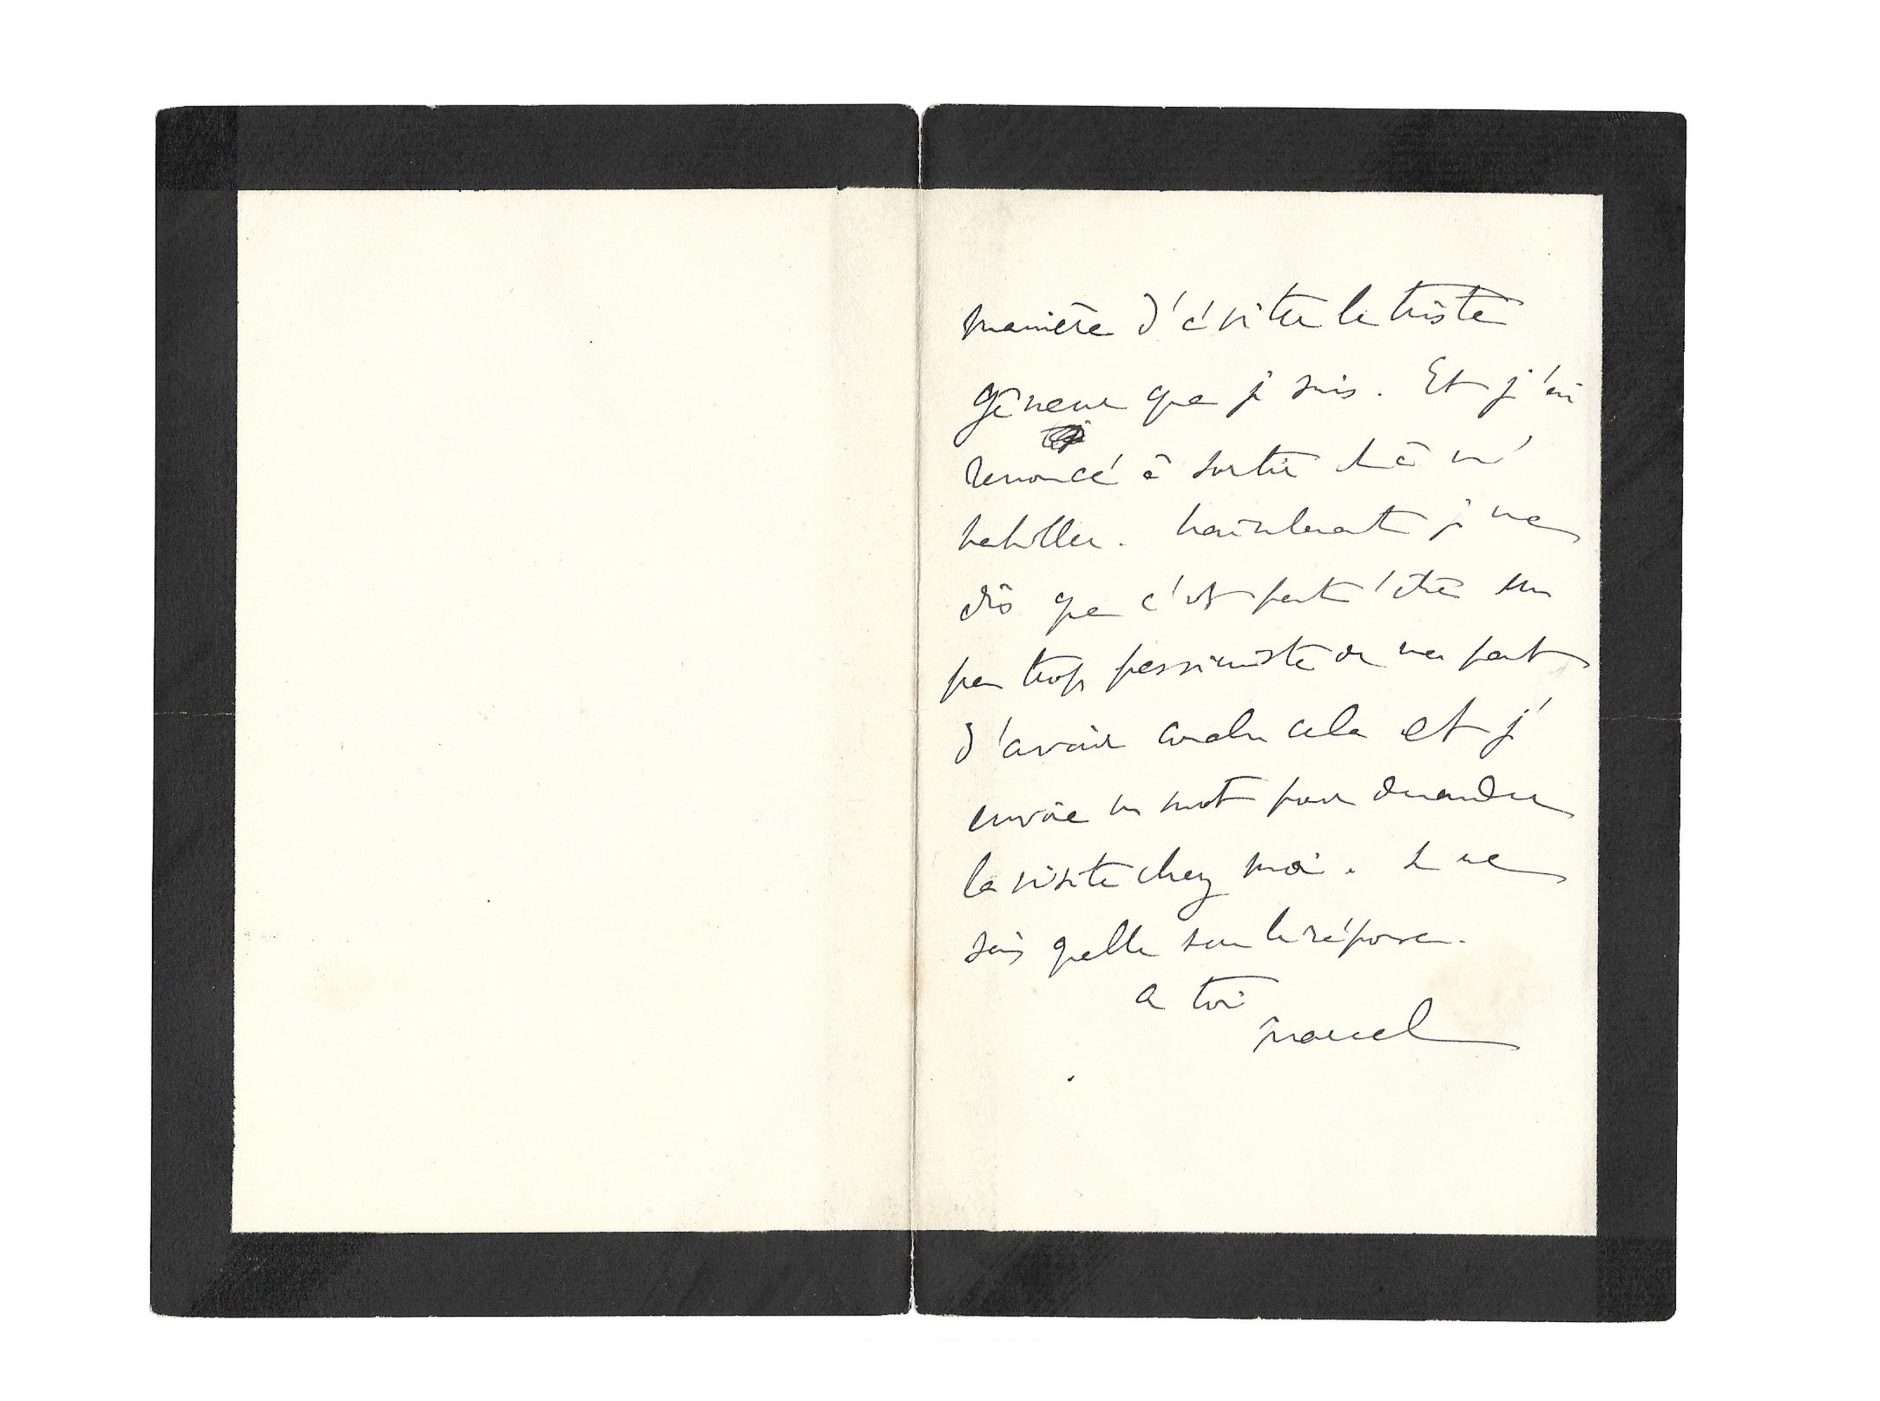 manière d'éviter le triste
gêneur que je suis. Et j'ai
renoncé à sortir et à m'
habiller. Maintenant je me
dis que c'est peut'être un
peu trop pessimiste de ma part
d'avoir conclu cela et j'
envoie un mot pour demander
la visite chez moi. Je ne
sais quelle sera la réponse.
a toi
Marcel